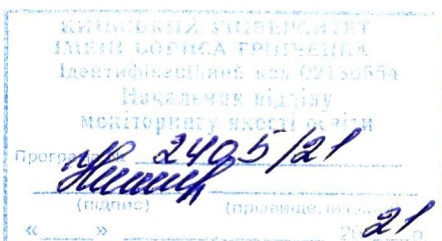 КИЇВСЬКИЙ УНІВЕРСИТЕТ
ІМЕНІ БОРИСА ГРІНЧЕНКА
Ідентифікаційний код 02136554
Начальник відділу
моніторингу якості освіти
Програма № 2405/21
(підпис) (прізвище,
« » 20 21 р.